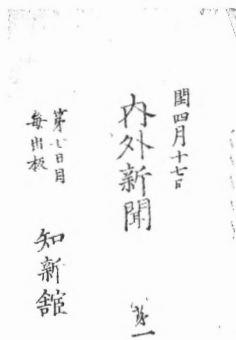 閏四月十七日
内外新聞 第一
第七日目
毎出板
知新舘